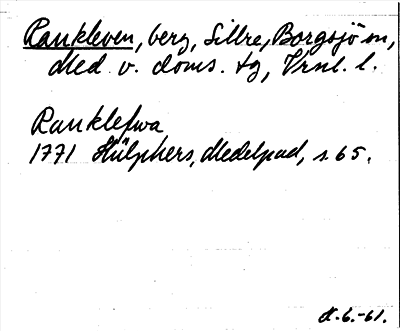 Rankleven, berg, Sillre, Borgsjö sn,
Med. v. doms. tg, Vrnl. l.
Ranklefwa
1771 Hülphers, Medelpad, s. 65.
K. 6.-61.